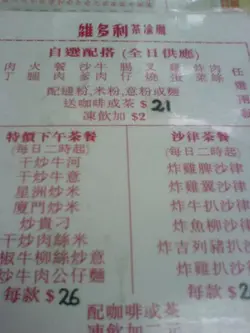 維多利茶湌廳
自選配搭 (全日供應)
肉丁 火腿 餐肉 沙爹 牛肉 腸仔 叉燒 雞蛋 菜 肉絲 任
配通粉,米粉,意粉或麵
送咖啡或茶 $21
凍飲加 $2
特價下午茶餐
(每日二時起)
干炒牛河
干炒牛意
星洲炒米
廈門炒米
炒貴刁
干炒肉絲米
椒牛柳絲炒意
炒牛肉公仔麵
每款 $26
沙律茶餐
(每日二時起)
炸雞脾沙律
炸雞翼沙律
炸牛扒沙律
炸魚柳沙律
炸吉列豬扒沙
炸雞扒沙律
每款 $2
配咖啡或茶
凍飲加